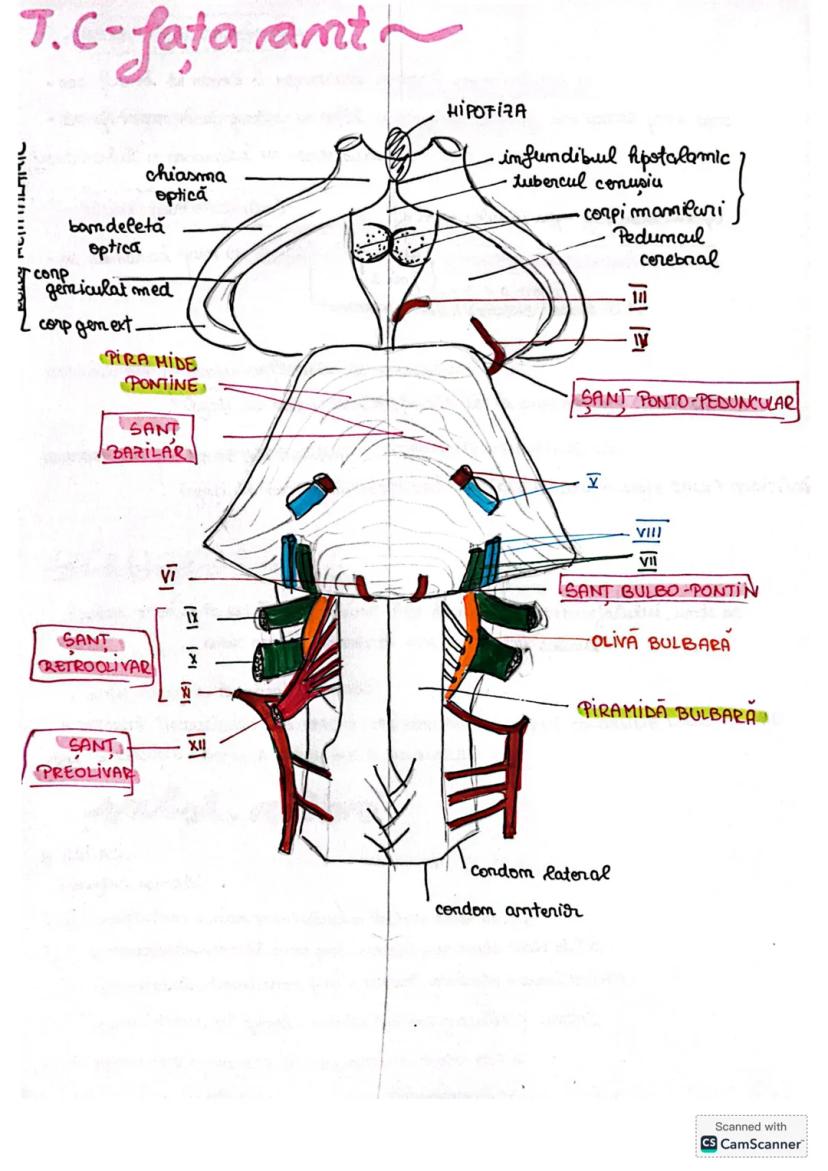 T.C-fața ant
HIPOFIZA
chiasma
optică
infundibul hpotalamic
tubercul cenușiu
corpi mamilari
bandeletă
optică
Peduncul
cerebral
corp
geniculat med
corp gen ext
III
IV
PIRAMIDE
PONTINE
ȘANȚ PONTO-PEDUNCULAR
SANȚ
BAZILAR
V
VIII
VII
VI
SANT BULBO-PONTIN
IX
ȘANȚ
RETROOLIVAR
X
OLIVĂ BULBARĂ
XI
PIRAMIDĂ BULBARĂ
ȘANȚ
PREOLIVAR
XII
cordom lateral
cordom anterior
Scanned with
CS CamScanner